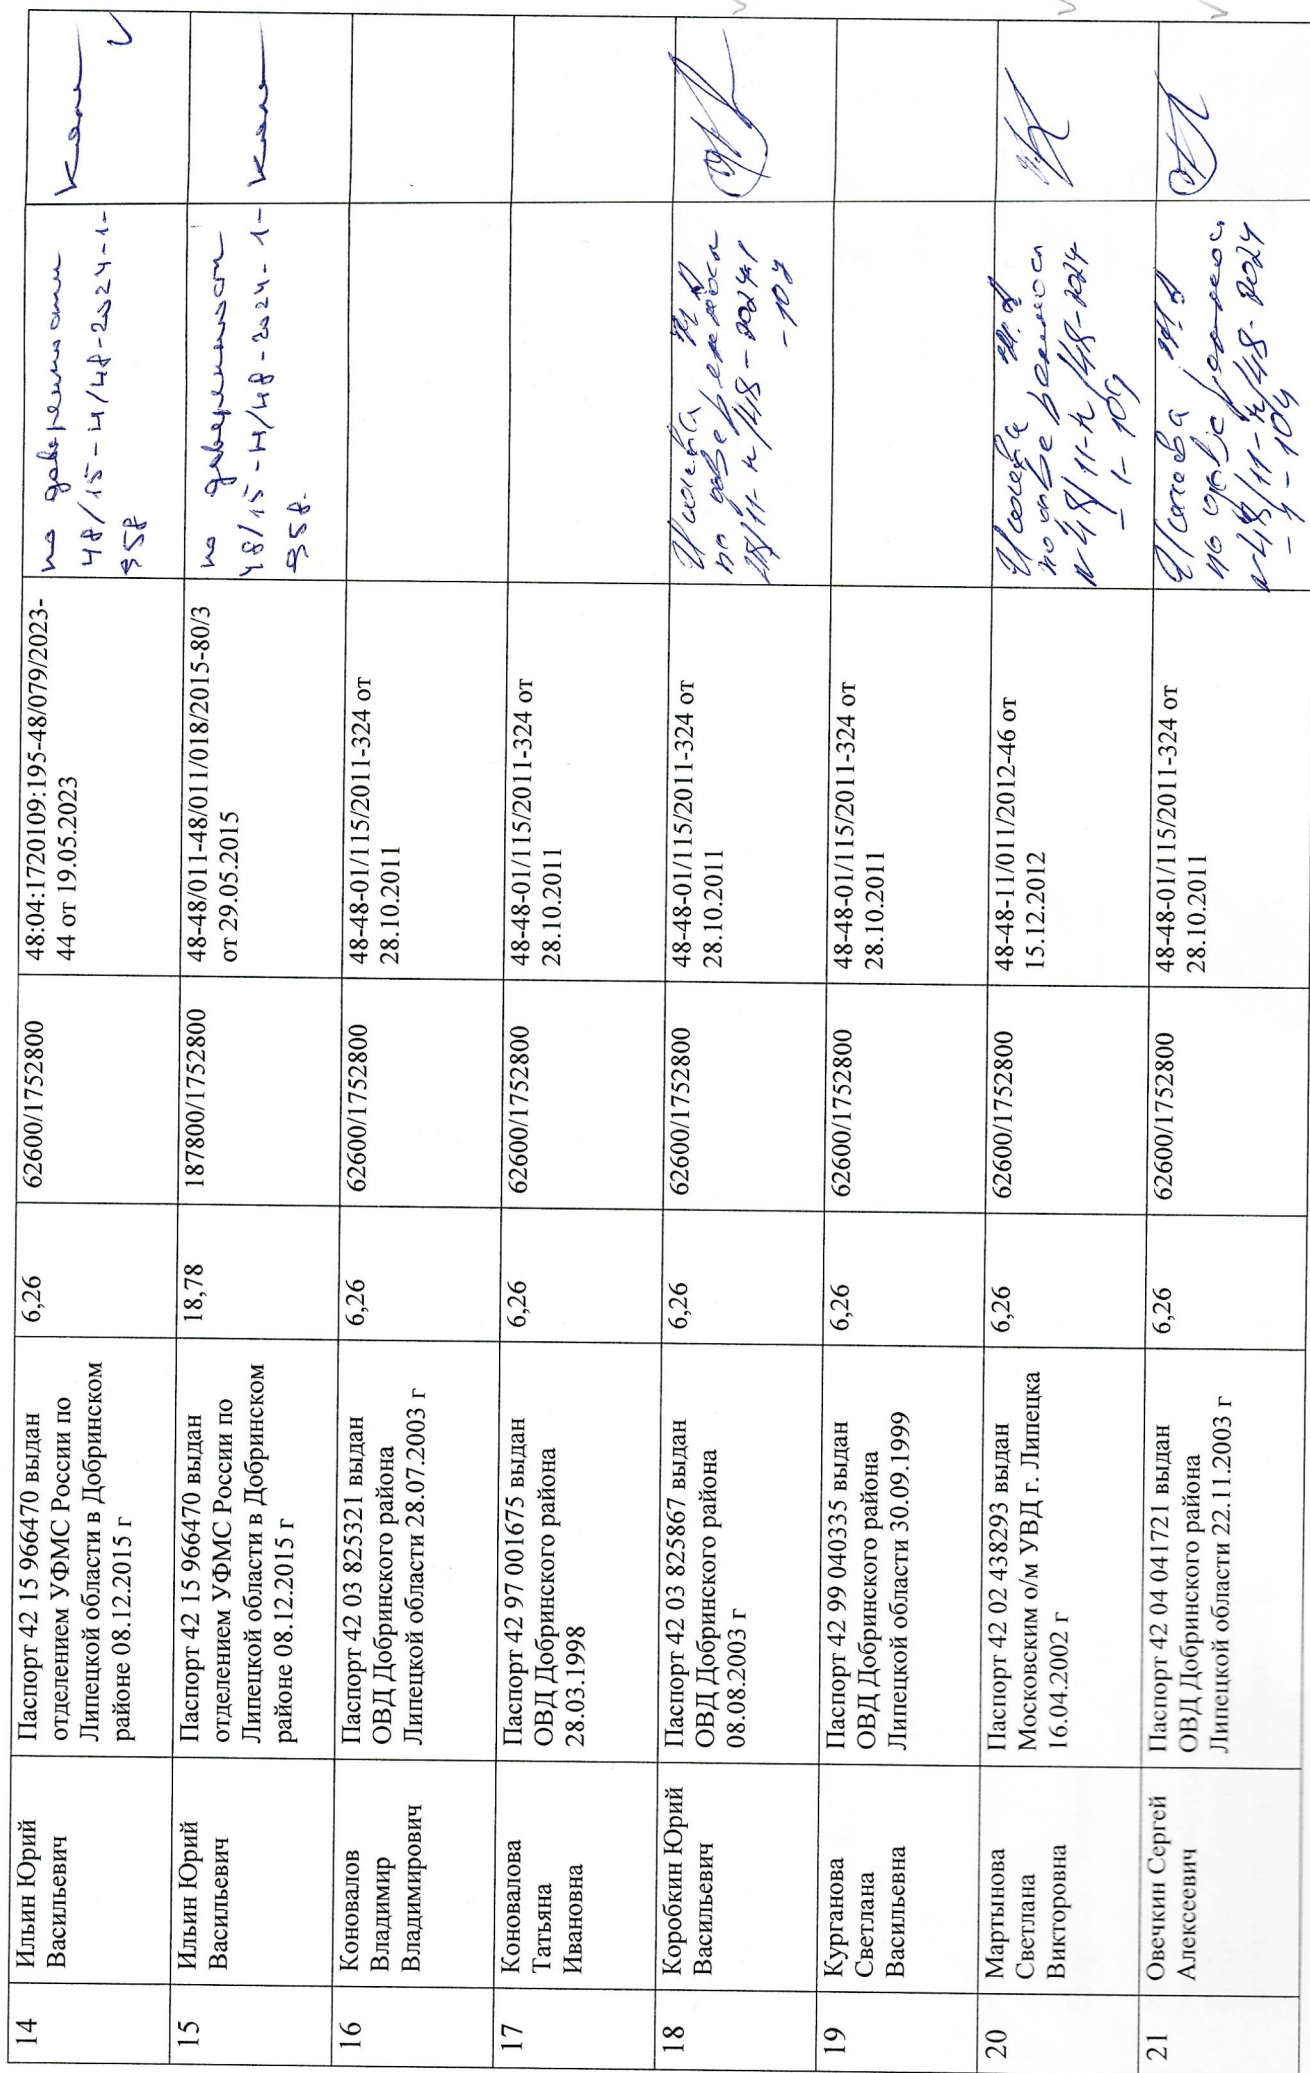 14
Ильин Юрий
Васильевич
Паспорт 42 15 966470 выдан
отделением УФМС России по
Липецкой области в Добринском
районе 08.12.2015 г
6,26
62600/1752800
48:04:1720109:195-48/079/2023-
44 от 19.05.2023
по доверенности
48/15-н/48-2024-1-
958
15
Ильин Юрий
Васильевич
Паспорт 42 15 966470 выдан
отделением УФМС России по
Липецкой области в Добринском
районе 08.12.2015 г
18,78
187800/1752800
48-48/011-48/011/018/2015-80/3
от 29.05.2015
по доверенности
48/15-н/48-2024-1-
958.
16
Коновалов
Владимир
Владимирович
Паспорт 42 03 825321 выдан
ОВД Добринского района
Липецкой области 28.07.2003 г
6,26
62600/1752800
48-48-01/115/2011-324 от
28.10.2011
17
Коновалова
Татьяна
Ивановна
Паспорт 42 97 001675 выдан
ОВД Добринского района
28.03.1998
6,26
62600/1752800
48-48-01/115/2011-324 от
28.10.2011
18
Коробкин Юрий
Васильевич
Паспорт 42 03 825867 выдан
ОВД Добринского района
08.08.2003 г
6,26
62600/1752800
48-48-01/115/2011-324 от
28.10.2011
по
19
Курганова
Светлана
Васильевна
Паспорт 42 99 040335 выдан
ОВД Добринского района
Липецкой области 30.09.1999
6,26
62600/1752800
48-48-01/115/2011-324 от
28.10.2011
20
Мартынова
Светлана
Викторовна
Паспорт 42 02 438293 выдан
Московским о/м УВД г. Липецка
16.04.2002 г
6,26
62600/1752800
48-48-11/011/2012-46 от
15.12.2012
по
48/11-н/48-2024
-1-109
21
Овечкин Сергей
Алексеевич
Паспорт 42 04 041721 выдан
ОВД Добринского района
Липецкой области 22.11.2003 г
6,26
62600/1752800
48-48-01/115/2011-324 от
28.10.2011
по
48/11-н/48-2024